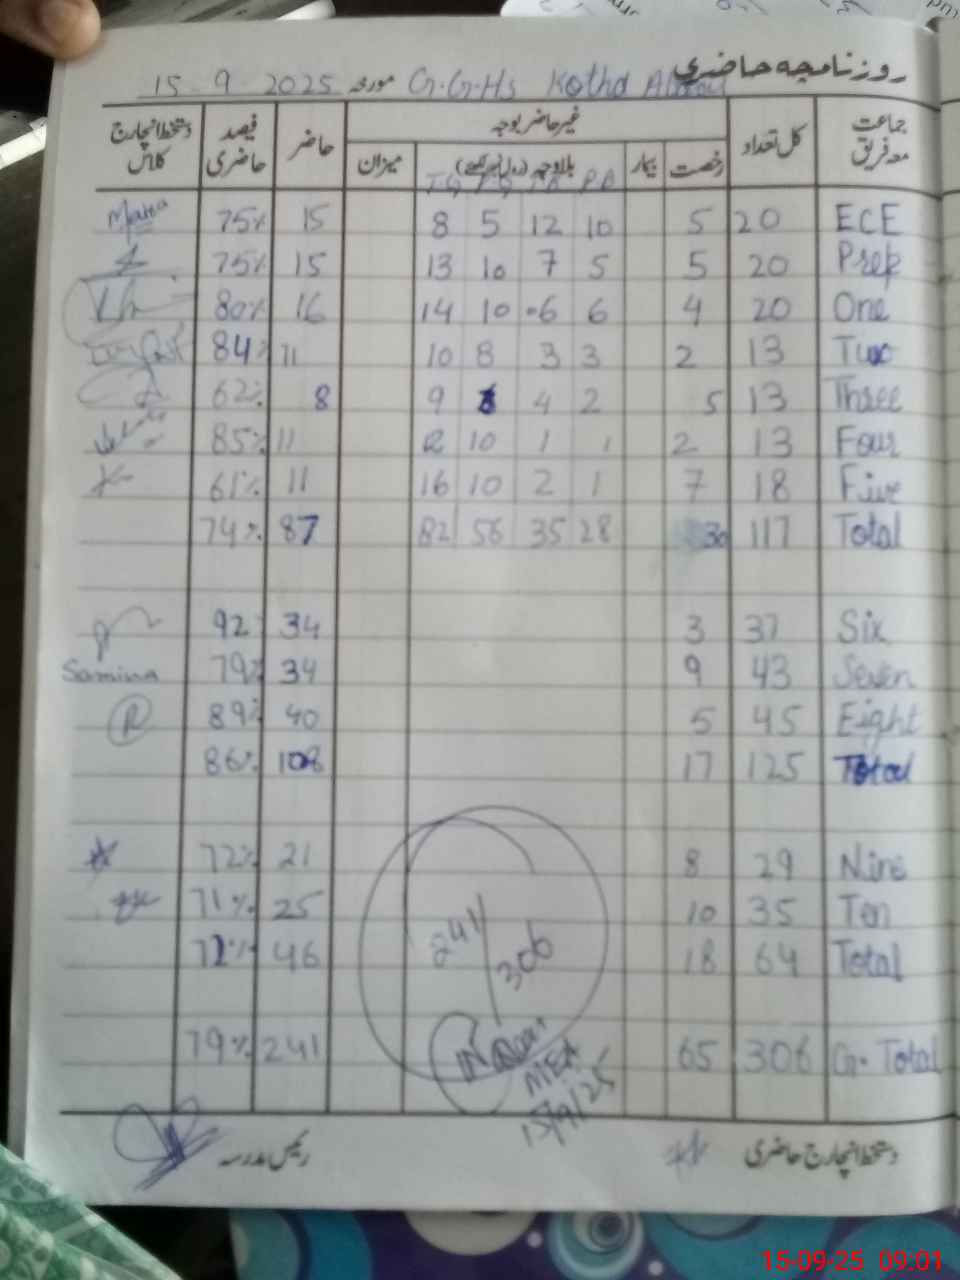 روزنامچہ حاضری
G.G.Hs Kotha مورخہ 15-9-2025
جماعت معہ فریق کل تعداد غیر حاضر بوجہ حاضر فیصد حاضری دستخط انچارج کلاس
رخصت بیمار بلاوجہ میزان
ECE 20 5 10 12 5 8 15 75%
Prep 20 5 5 7 10 13 15 75%
One 20 4 6 6 10 14 16 80%
Two 13 2 3 3 8 10 11 84%
Three 13 5 2 4 9 8 62%
Four 13 2 1 1 10 12 11 85%
Five 18 7 1 2 10 16 11 61%
Total 117 30 28 35 56 82 87 74%
Six 37 3 34 92%
Seven 43 9 34 79% Samina
Eight 45 5 40 89% R
Total 125 17 108 86%
Nine 29 8 21 72%
Ten 35 10 25 71%
Total 64 18 46 72%
241/306
G. Total 306 65 241 79%
MEA
15/9/25
دستخط انچارج حاضری رئیس مدرسہ
15-09-25 09:01